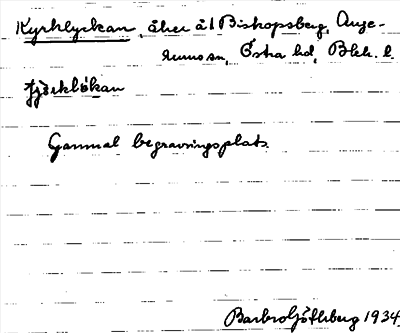 Kyrklyckan, åker åt Bishopsberg, Auge-
rums sn, Östra hd, Blek. l.
Gammal begravningsplats.
Barbro Götlberg 1934